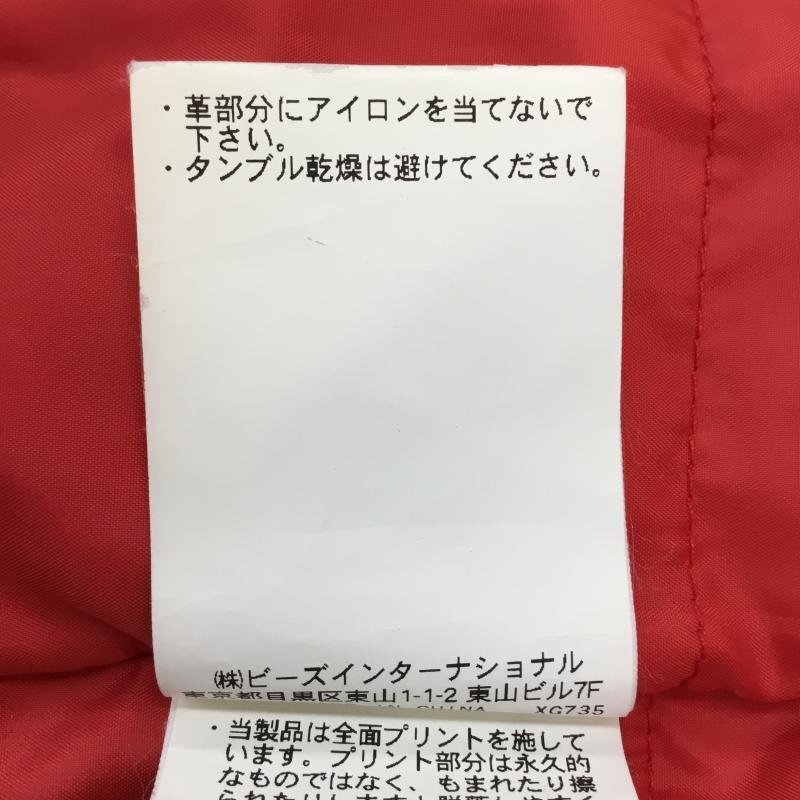 ・革部分にアイロンを当てないで
下さい。
・タンブル乾燥は避けてください。
㈱ビーズインターナショナル
東京都目黒区東山1-1-2 東山ビル7F
CHINA XG735
・当製品は全面プリントを施して
います。プリント部分は永久的
なものではなく、もまれたり擦
られたりしますと